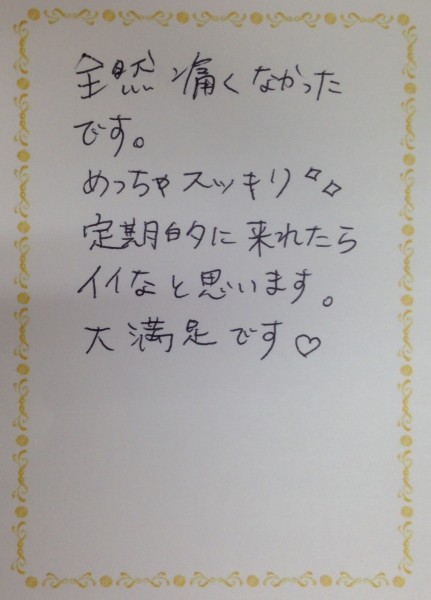 全然 痛くなかった
です。
めっちゃスッキリ✧✧
定期的に来れたら
イイなと思います。
大満足です♡